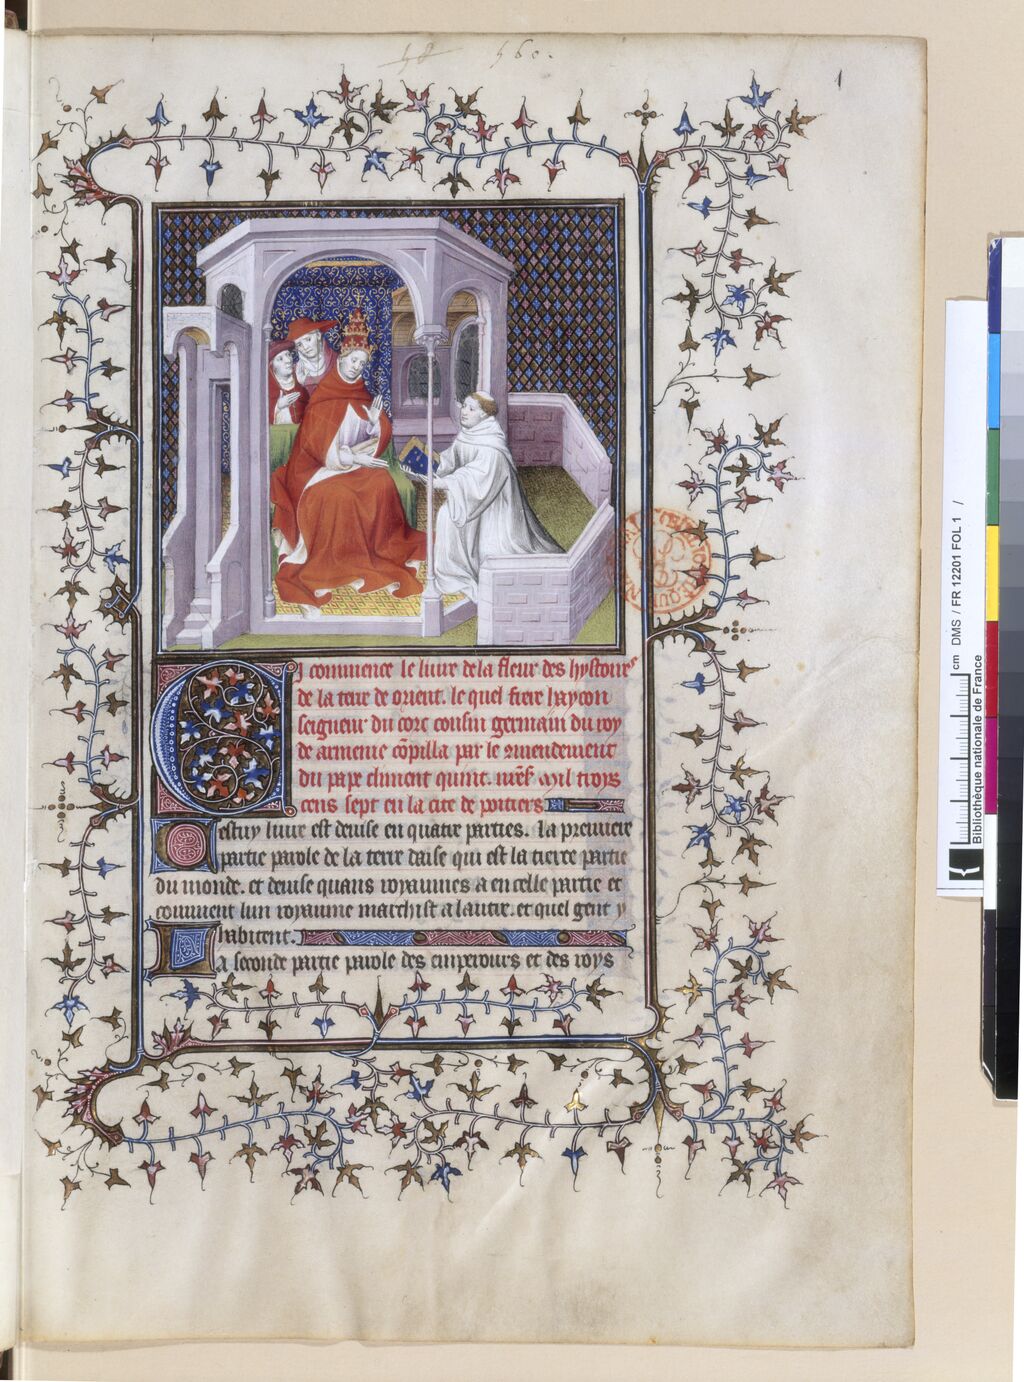 58 560.
1
Ci commence le liure de la fleur des hystoires
de la terre de orient. le quel frere haycon
seigneur du corc cousin germain du roy
de armenie cōpilla par le mendement
du pape climent quint. mil troys
cens sept en la cite de poitiers
Cestuy liure est deuise en quatre parties. la premiere
partie parole de la terre dasie qui est la tierce partie
du monde. et deuise quans royaumes a en celle partie et
comment lun royaume marchist a lautre. et quel gent y
habitent.
La seconde partie parole des empereurs et des roys
DMS / FR 12201 FOL 1 /
cm
Bibliothèque nationale de France